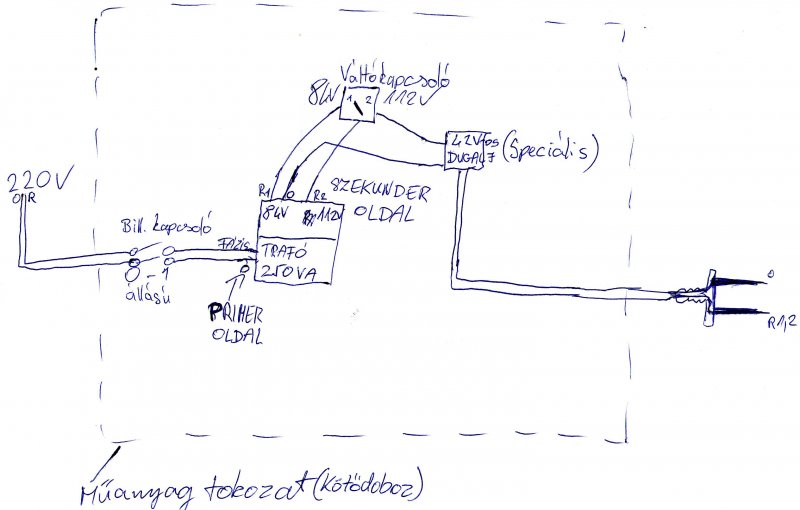 Váltókapcsoló
84V
1 2
112V
42V-os
DUGALJ
(Speciális)
220V
O R
R1 O R2
SZEKUNDER
OLDAL
84V
112V
Bill. kapcsoló
FÁZIS
TRAFÓ
250VA
O - 1
állású
O
PRIMER
OLDAL
O
R1,2
Műanyag tokozat (Kötődoboz)